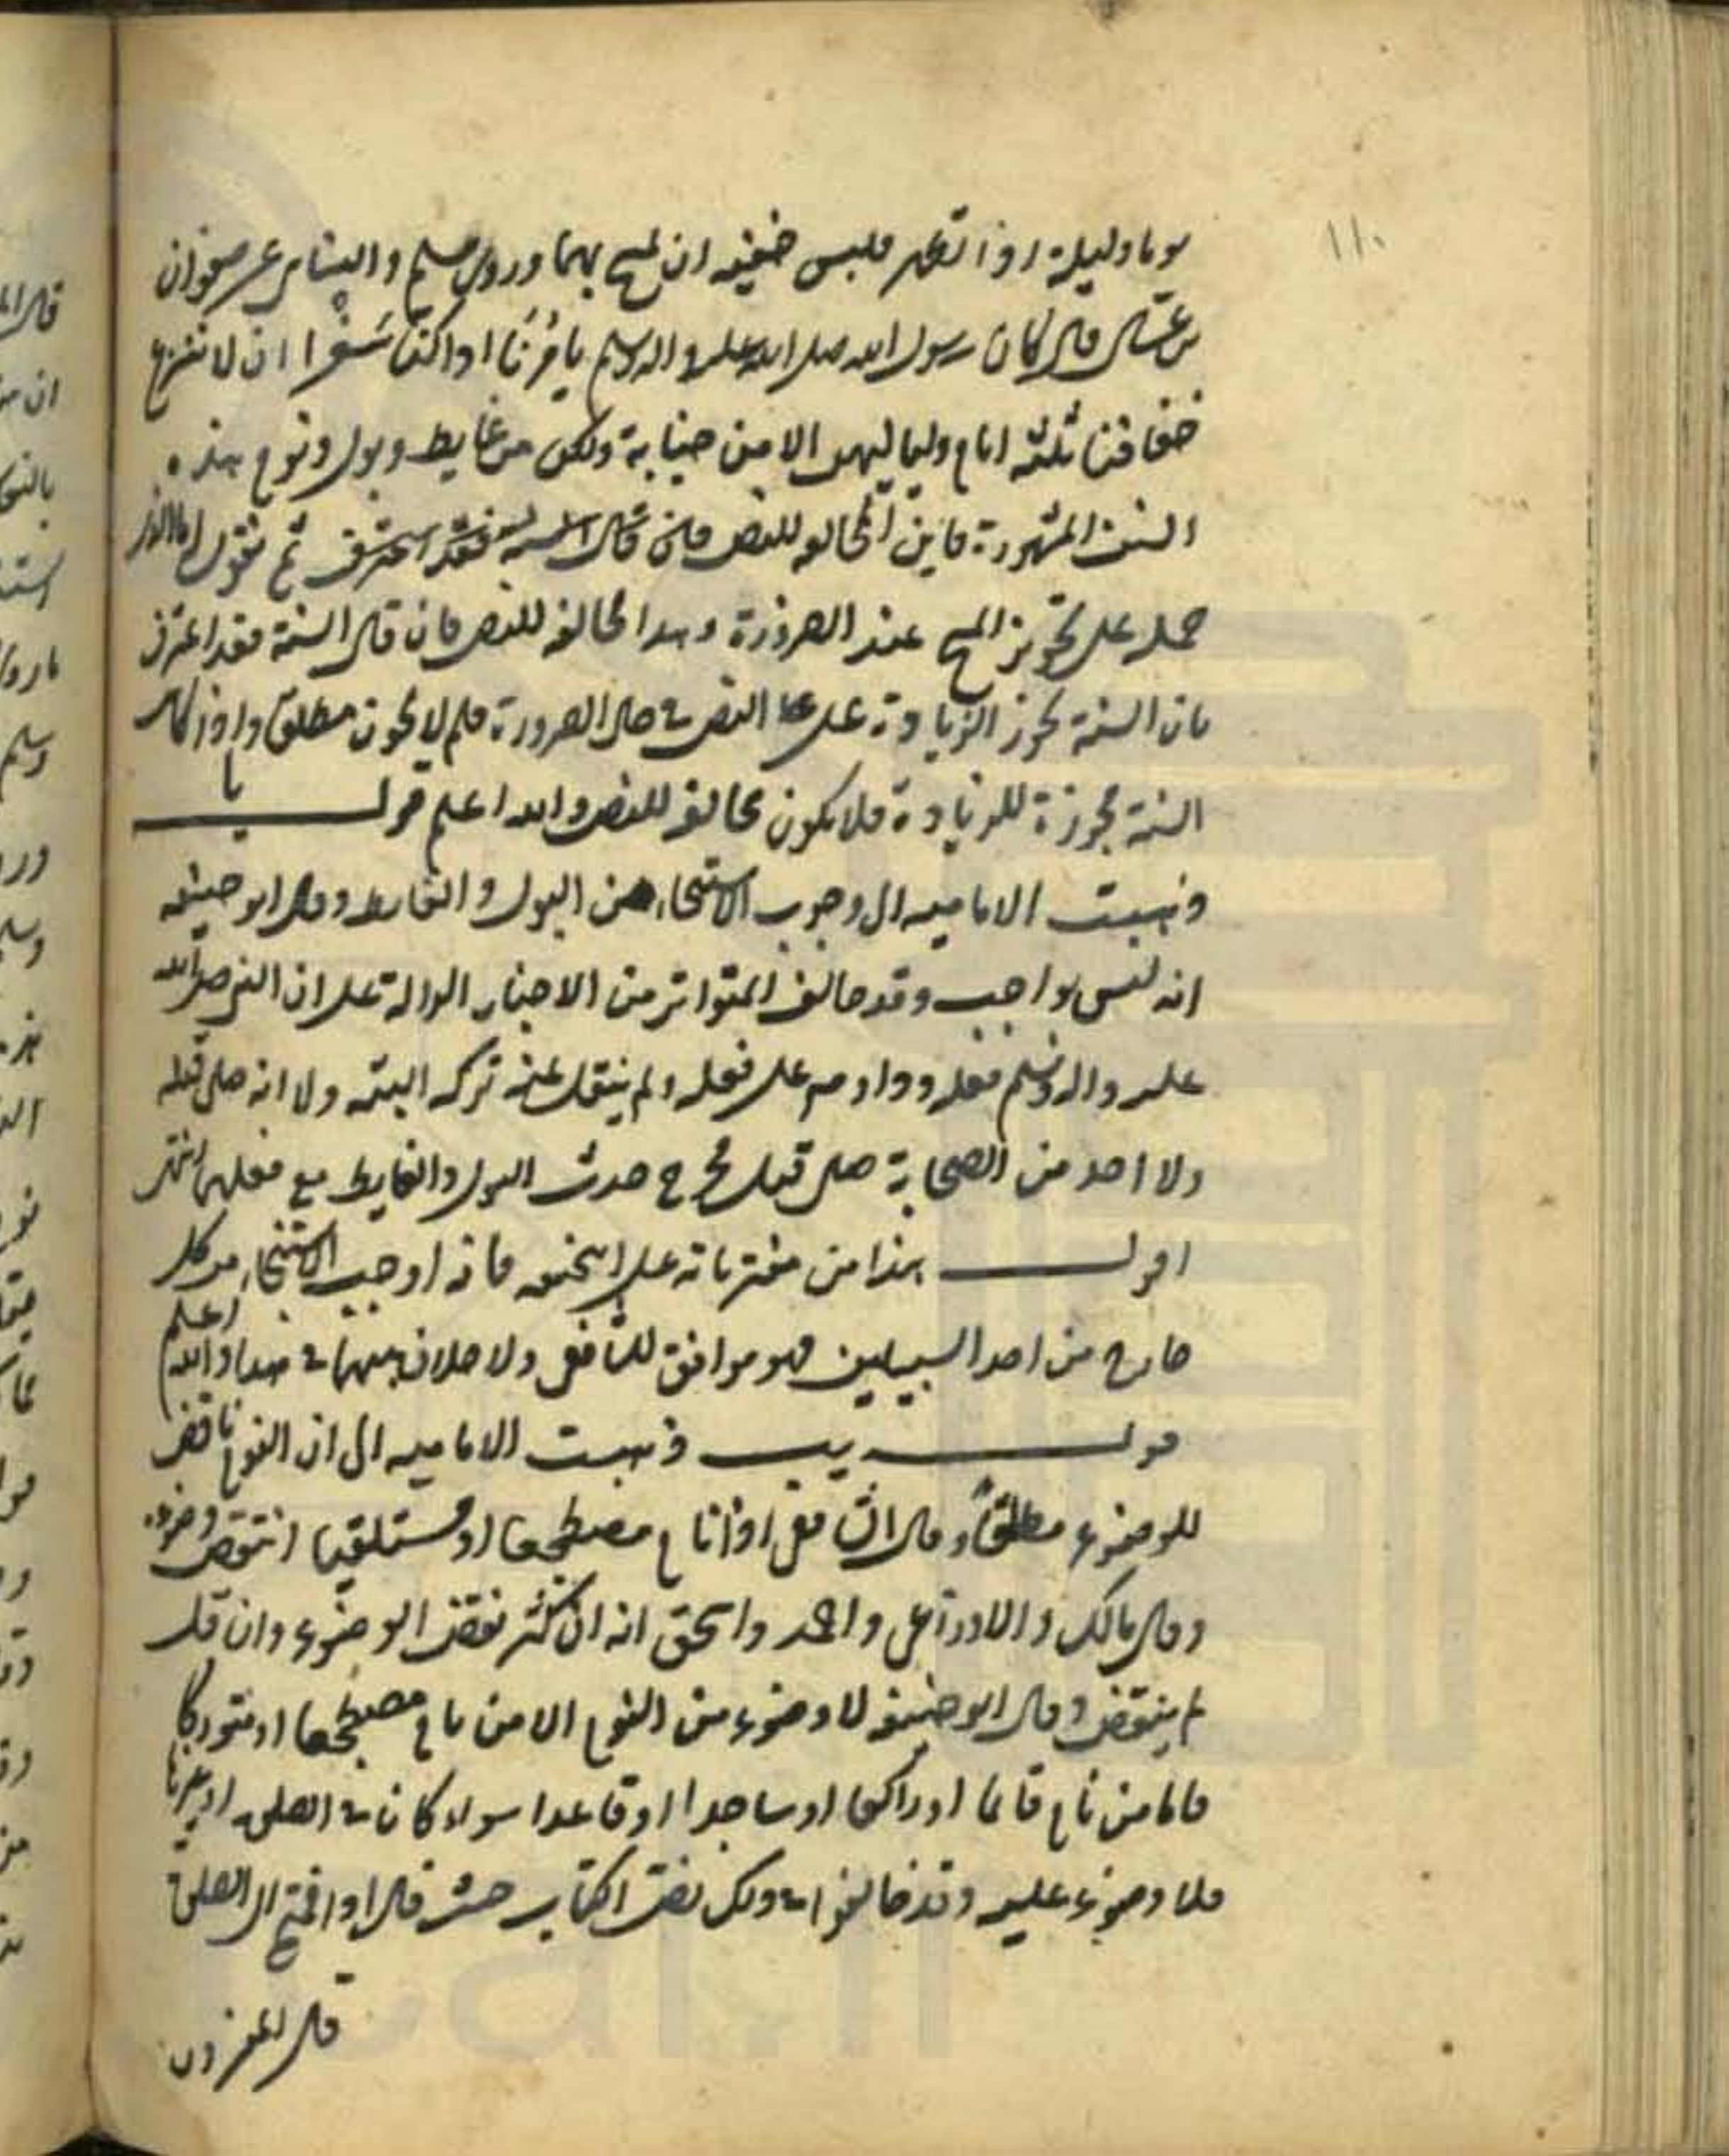 ١١٠
يوما وليلة اذا تطهر فلبس خفيه ان يمسح بهما وروى مسلم والنسائى عن صفوان
بن عسال قال كان رسول الله صلى الله عليه واله وسلم يامرنا اذا كنا سفرا ان لا ننزع
خفافنا ثلثة ايام ولياليهن الا من جنابة ولكن من غايط وبول ونوم هذه
السنن المشهورة فاين المخالفه للنص فان قال السنة فقد اعترف ثم نقول
حمله على تجويز المسح عند الضرورة وهذا مخالفة للنص فان قال السنة فقد اعترف
بان السنة تجوز الزيادة على النص فى حال الضرورة فلم لا يجوز مطلقا واذا كان
السنة مجوزة للزيادة فلا يكون مخالفة للنص والله اعلم قوله يا
ذهبت الاماميه الى وجوب الاستنجاء من البول والغايط وقال ابو حنيفه
انه ليس بواجب وقد خالف المتواتر من الاخبار الدالة على ان النبى صلى الله
عليه واله وسلم فعله وداوم على فعله ولم ينقل عنه تركه البتة ولا انه صلى قبله
ولا احد من الصحابة صلى قبل حدث البول والغايط مع فعلهما انتهى
اقول هذا من مفترياته على ابى حنيفه فانه اوجب الاستنجاء من كل
خارج من احد السبيلين فهو موافق للشافعى ولا خلاف بينهما فى هذا والله اعلم
قوله يب ذهبت الاماميه الى ان النوم ناقض
للوضوء مطلقا وقال الشافعى اذا نام مضطجعا او مستلقيا انتقض وضوءه
وقال مالك والاوزاعى واحمد واسحق انه ان كثر نقض الوضوء وان قل
لم ينقض وقال ابو حنيفه لا وضوء من النوم الا من نام مضطجعا او متوركا
فاما من نام قائما او راكعا او ساجدا او قاعدا سواء كان فى الصلوة او غيرها
فلا وضوء عليه وقد خالفوا فى ذلك نص الكتاب حيث قال اذا قمتم الى الصلوة
قال المفسرون